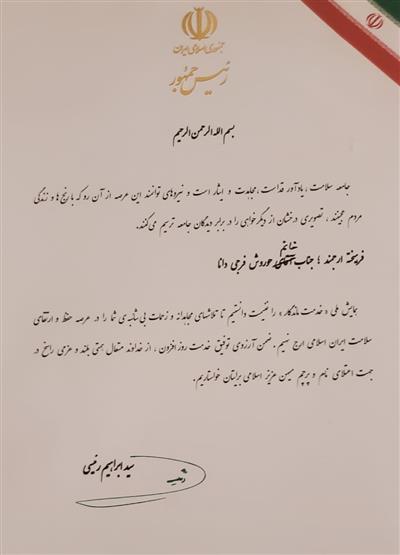 جمهوری اسلامی ایران
رئیس جمهور
بسم الله الرحمن الرحیم
جامعه سلامت، یادآور قداست، مجاهدت و ایثار است و نیروهای توانمند این عرصه از آن رو که با رنج ها و زندگی
مردم عجینند، تصویری درخشان از دیگرخواهی را در برابر دیدگان جامعه ترسیم می‌کنند.
خانم
فرهیخته ارجمند ؛ جناب آقای حوروش فرجی دانا
همایش ملی «خدمت ماندگار» را غنیمت دانستیم تا تلاشهای مجاهدانه و زحمات بی شائبه ی شما را در عرصه حفظ و ارتقای
سلامت ایران اسلامی ارج نهیم. ضمن آرزوی توفیق خدمت روزافزون، از خداوند متعال همتی بلند و عزمی راسخ در
جهت اعتلای نام و پرچم میهن عزیز اسلامی برایتان خواستاریم.
سید ابراهیم رئیسی